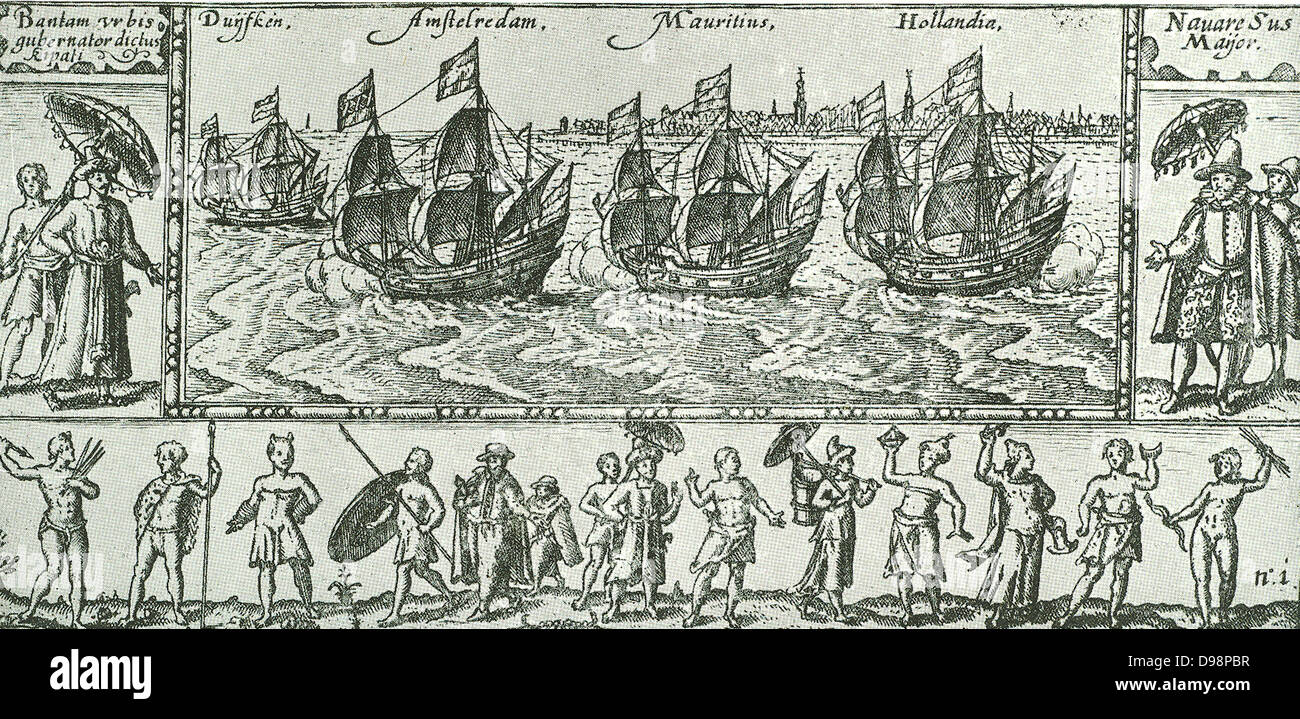 Bantam vrbis
gubernator dictus
kipati
Duÿfken,
Amstelredam,
Mauritius,
Hollandia,
Navare Sus
Maijor.
n.° i
alamy stock photo
a
alamy
D98PBR
www.alamy.com